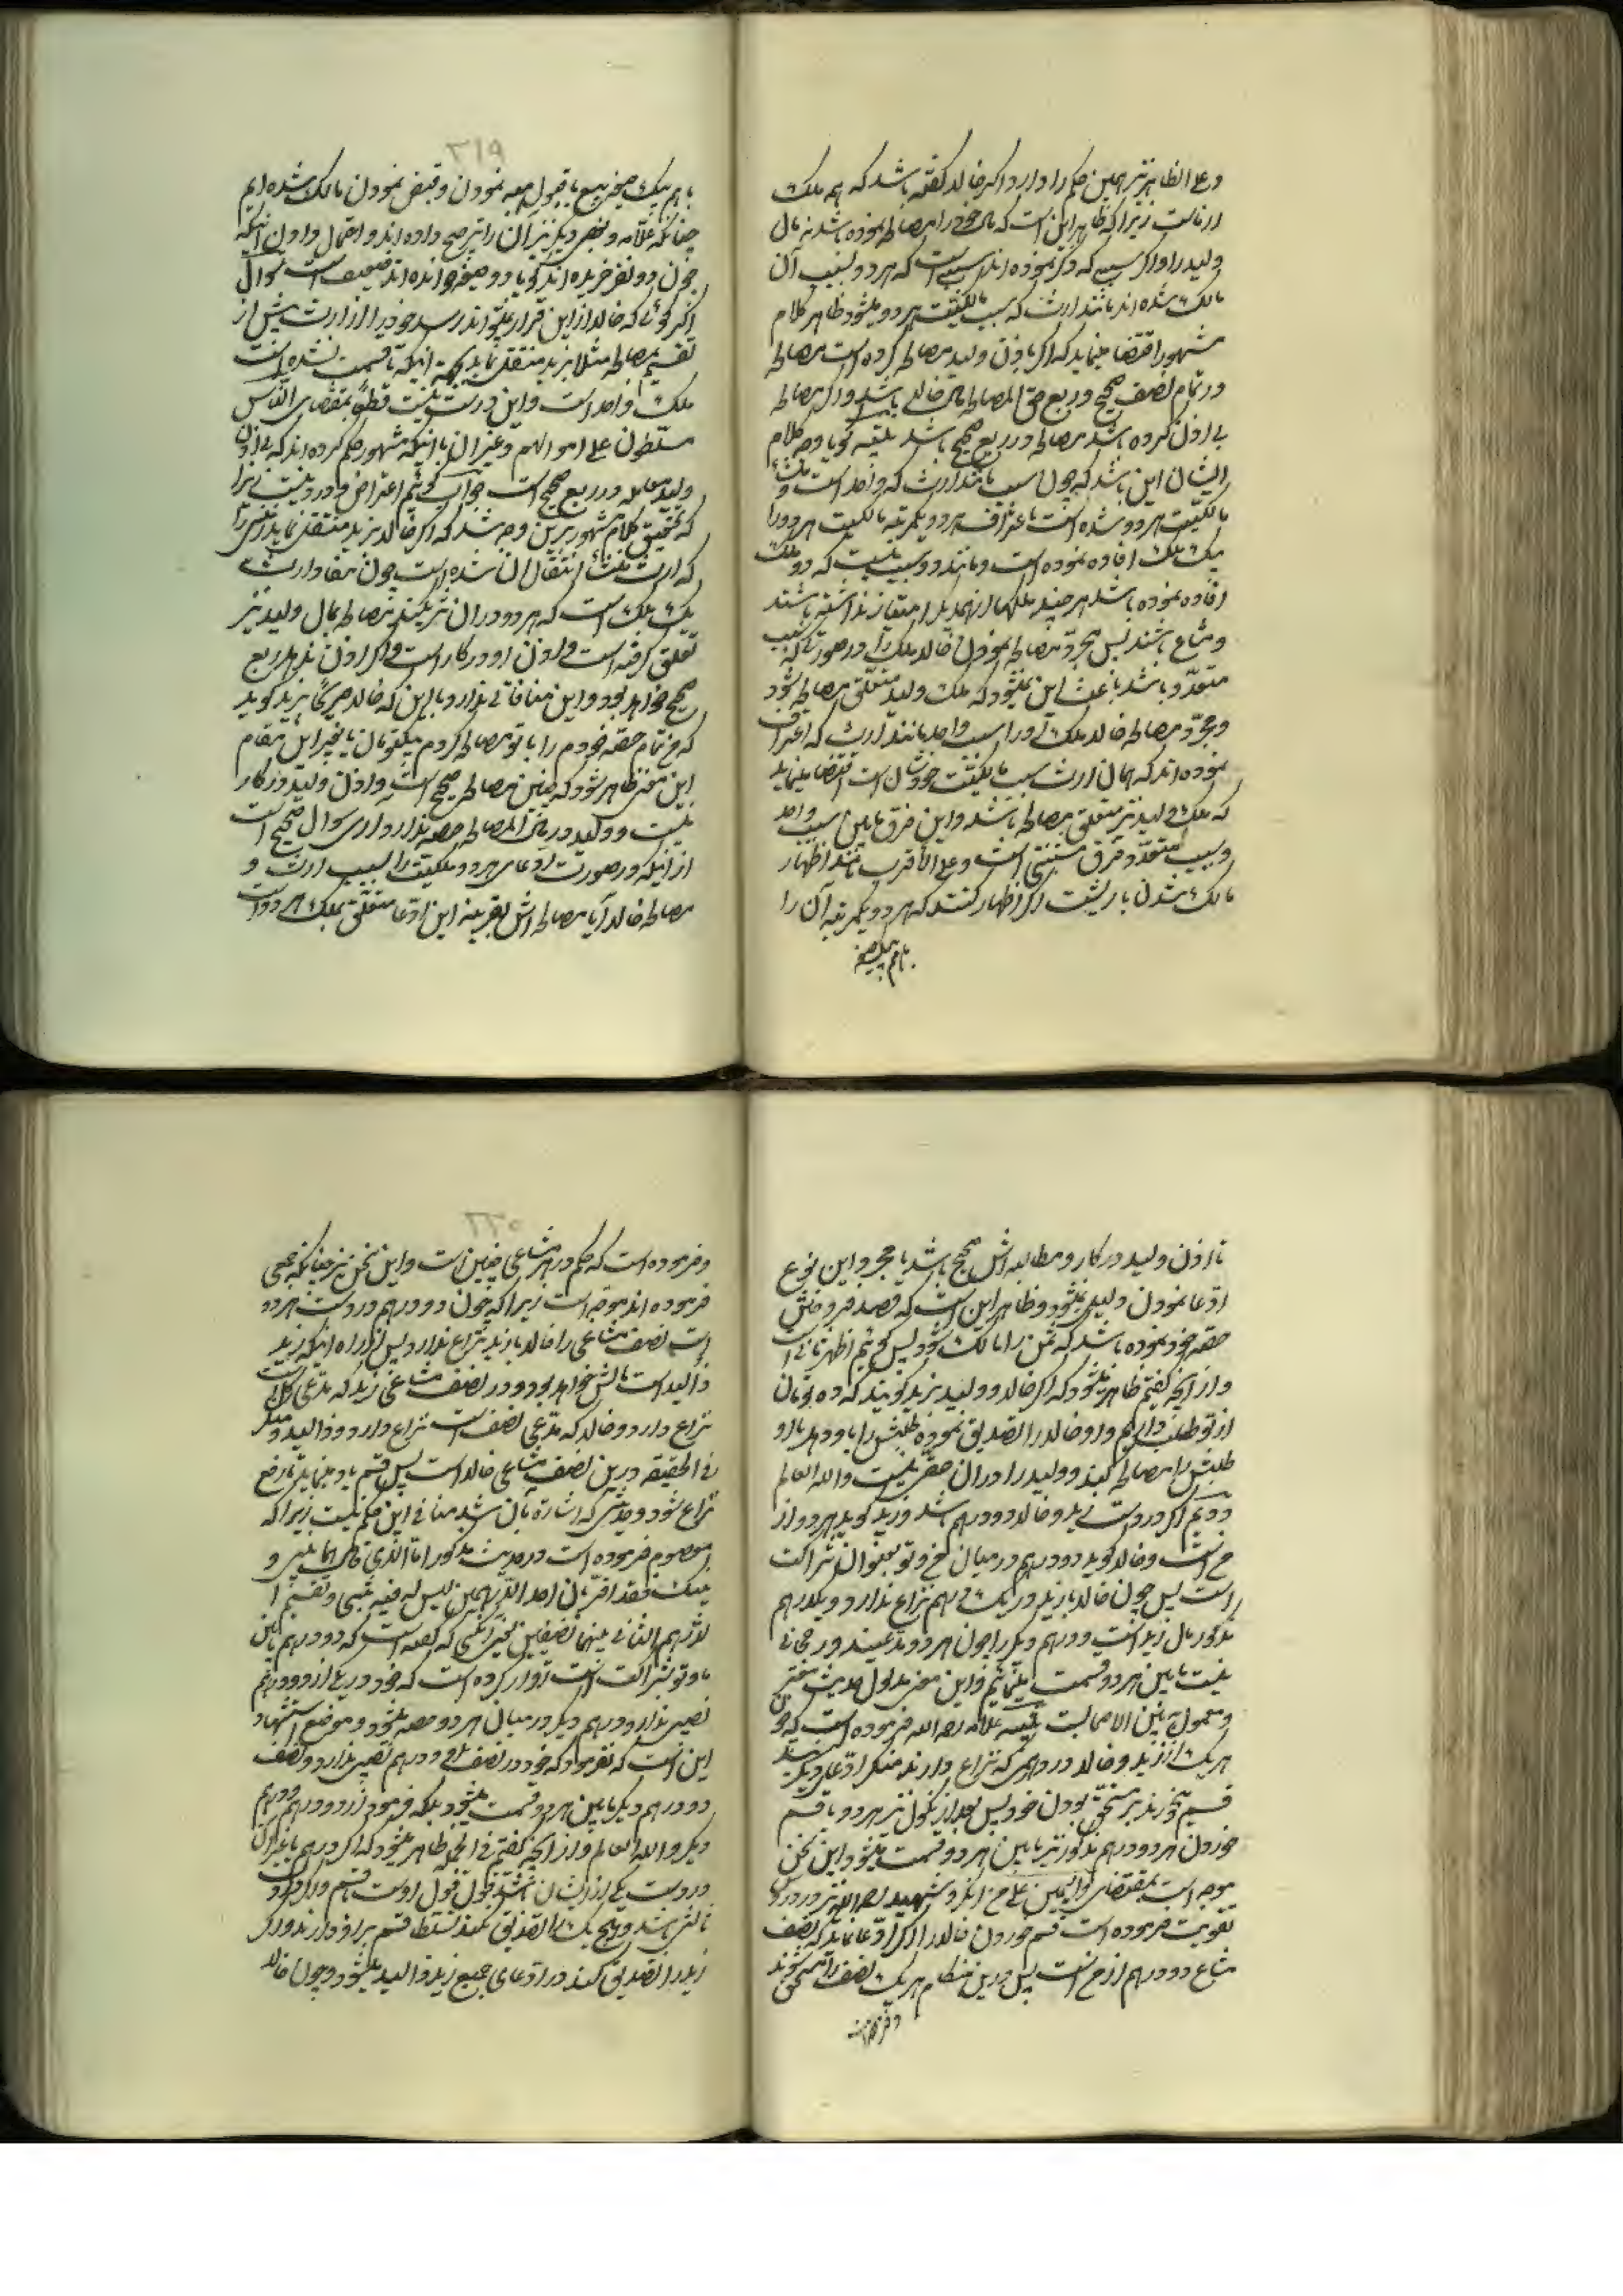 و علی الظاهر نیز همین حکم را دارد اگر خالد گفته باشد که هم ملک
ارثاست زیرا که ظاهر این است که مال خود را مصالحه نموده باشد نه مال
ولید را و اگر سببی که ذکر نموده اند سببی است که هر دو بسبب آن
مالک شده اند مانند ارث که سبب مالکیت هر دو میشود ظاهر کلام
مشهور اقتضا مینماید که اگر باذن ولید مصالحه کرده است مصالحه
در تمام نصف صحیح و ربع حق المصالحه مال خالد باشد و اگر مصالحه
بی اذن کرده باشد مصالحه در ربع صحیح باشد گویا وجه کلام
ایشان این باشد که چون سبب مانند ارث که واحد است و
مالکیت هر دو شده است باعتراف هر دو یکمرتبه مالکیت هر دو را
یک ملک افاده نموده است و مانند دو سبب نیست که دو ملک
افاده نموده باشد هر چند ملکها از همدیگر امتیاز نداشته باشند
و مشاع باشند پس بمجرد مصالحه نمودن خالد ملک را در صورتی که سبب
متعدد باشد باعث این نمیشود که ملک ولید متعلق مصالحه شود
و بمجرد مصالحه خالد ملک را در سبب واحد مانند ارث که اعتراف
نموده اند که همان ارث سبب مالکیت خودشان است اقتضا مینماید
که ملک ولید نیز متعلق مصالحه باشد و این فرق مابین سبب واحد
و سبب متعدد فرق است و علی الاقرب مانند اظهار
مالک شدن بارثیت اگر اظهار کنند که هر دو یکمرتبه آن را
باهم بیک صیغه
۲۱۹
باهم بیک صیغه بیع یا قبول هبه نمودن و قبض نمودن مالک شده ایم
چنانکه علامه و بعضی دیگر نیز آن را ترجیح داده اند و احتمال دادن اینکه
چون دو نفر خریده اند گویا دو صیغه خوانده اند ضعیف است سوال
اگر گوئی که خالد از این قرار نتواند رسد خود را از ارث پیش از
تقسیم بمصالحه مثلا بزید منتقل نماید بجهة اینکه تا قسمت نشده است
ملک واحد است و این درست نیست قطعا بمقتضای الناس
مسلطون علی اموالهم و غیر آن با اینکه مشهور حکم کرده اند که بی اذن
ولید معامله در ربع صحیح است جواب گوئیم اعتراض وارد نیست زیرا
که تحقیق کلام مشهور برین وجه شد که اگر خالد بزید منتقل نماید چیزی را
که ارث انتقال آن شده است چون بمفاد ارث
یک ملک است که هر دو در آن شریکند مصالحه بمال ولید نیز
تعلق گرفته است و اذن او در کار است و اگر اذن ندهد ربع
صحیح خواهد بود و این منافاتی ندارد با این که خالد صریحا بزید گوید
که من تمام حصه خودم را با تو مصالحه کردم بیکتومان یا بغیر این مقام
این معنی ظاهر شود که چنین مصالحه صحیح است و اذن ولید در کار
نیست و ولید در مال المصالحه حصه ندارد اری سوال صحیح است
از اینکه در صورت ادعای هر دو ملکیت را بسبب ارث و
مصالحه خالد آیا مصالحه اش بقرینه این ادعا متعلق بملک هر دو است
تا اذن ولید در کار و مطالبه اش صحیح باشد یا بمجرد این نوع
ادعا نمودن ولید نمیشود و ظاهر این است که قصد فروختن
حصه خود نموده باشد که ثمن را مالک شود پس گوئیم اظهر ثانی است
و از آنچه گفتیم ظاهر میشود که اگر خالد و ولید بزید گویند که ده تومان
از تو طلب داریم و او خالد را تصدیق نموده طلبش را باو دهد یا او
طلبش را مصالحه کند و ولید را در آن حقی نیست والله العالم
دویم اگر در دست زید و خالد دو درهم باشد و زید گوید هر دو از
من است و خالد گوید دو درهم در میان من و تو بعنوان شراکت
است پس چون خالد با زید در یک درهم نزاع ندارد و یکدرهم
مذکور مال زید است و درهم دیگر را چون هر دو مدعیند و رجحانی
نیست مابین هر دو قسمت مینمائیم و این معنی مدلول حدیث معتبر
و معمول بین الاصحاب علامه رحمه الله فرموده است که چون
هر یک از زید و خالد در درهمی که نزاع دارند منکر ادعای دیگریند
قسم بخورند بر مستحق بودن خود پس بعد از نکول نیز هر دو یا قسم
خوردن هر دو درهم مذکور نیز مابین هر دو قسمت میشود و این سخن
موجه است بمقتضای والیمین علی من انکر و شهید رحمه الله نیز در دروس
تقویت فرموده است قسم خوردن خالد را اگر ادعا نماید که نصف
مشاع دو درهم از من است پس درین هنگام هر یک نصف را مستحق شوند
و فرموده است
۲۲۰
و فرموده است که حکم در هر مشاعی چنین است و این سخن نیز چنانکه جمعی
فرموده اند موجه است زیرا که چون دو درهم در دست هر دو
است نصف مشاعی را خالد با زید نزاع ندارد پس از راه اینکه زید
ذالید است مالش خواهد بود و در نصف مشاعی زید که مدعی کل است
نزاع دارد و خالد که مدعی نصف است نزاع دارد و ذوالید و منکر
فی الحقیقه درین نصف مشاعی خالد است پس قسم یاد مینماید تا رفع
نزاع شود و حدیثی که اشاره بآن شد منافی این حکم نیست زیرا که
معصوم فرموده است در حدیث مذکور اما الذی قال هما بینی و
بینک فقد اقر بان احد الدرهمین لیس له فیه شیئ و یقسم ا
لدرهم الثانی بینهما نصفین یعنی آنکسی که گفته است که دو درهم مابین
ما و تو بشراکت است اقرار کرده است که خود در یکی از دو درهم
نصیبی ندارد و درهم دیگر در میان هر دو حصه میشود و موضع استشهاد
این است که نفرمود که خود در نصف دو درهم نصیبی ندارد و نصف
دو درهم دیگر مابین هر دو قسمت میشود بلکه فرمود از دو درهم درهم
دیگر والله العالم و از آنچه گفتیم فی الجمله ظاهر میشود که اگر درهم یا غیر آن
در دست یکی از ایشان باشد قول قول اوست با قسم و اگر در دست
ثالثی باشد و هیچ یک را تصدیق نکند تسلط قسم بر او دارند و اگر
زید را تصدیق کند در ادعای جمیع زید ذالید میشود و چون خالد